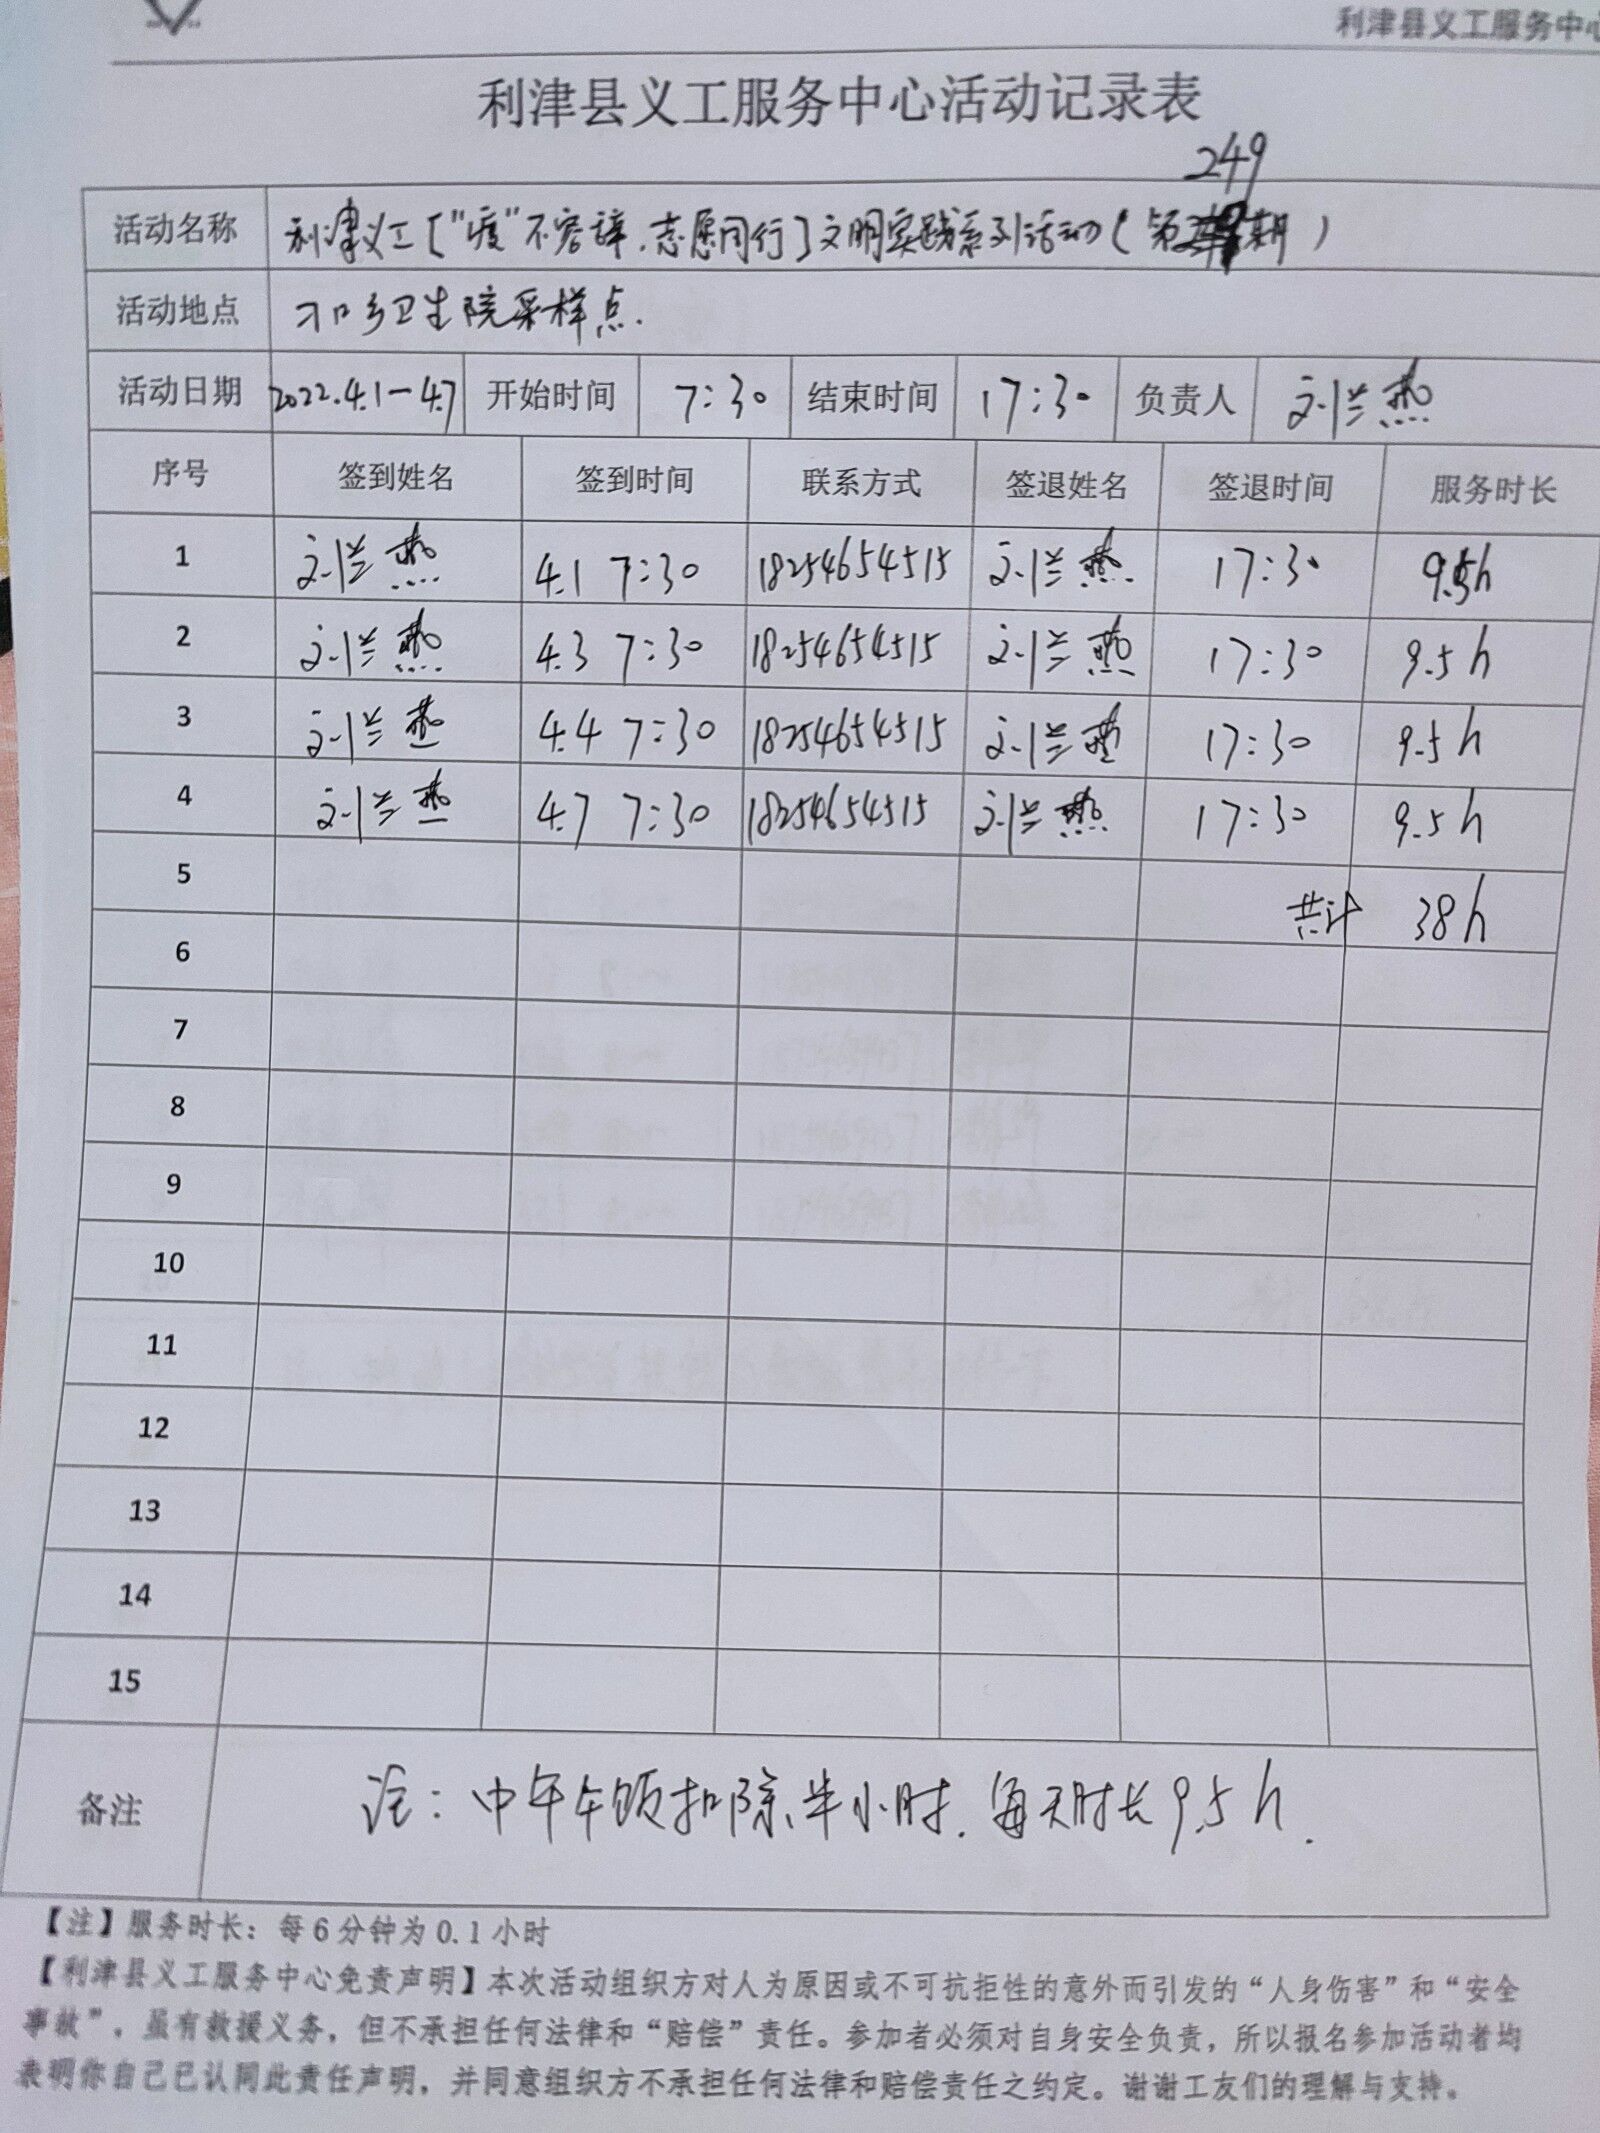 利津县义工服务中心
利津县义工服务中心活动记录表
249
活动名称 利津义工["疫"不容辞.志愿同行]文明实践系列活动(第期)
活动地点 刁口乡卫生院采样点.
活动日期 2022.4.1-4.7 开始时间 7:30 结束时间 17:30 负责人 刘兰燕
序号 签到姓名 签到时间 联系方式 签退姓名 签退时间 服务时长
1 刘兰燕 4.1 7:30 18254654515 刘兰燕 17:30 9.5h
2 刘兰燕 4.3 7:30 18254654515 刘兰燕 17:30 9.5h
3 刘兰燕 4.4 7:30 18254654515 刘兰燕 17:30 9.5h
4 刘兰燕 4.7 7:30 18254654515 刘兰燕 17:30 9.5h
5 共计 38h
6
7
8
9
10
11
12
13
14
15
备注 注:中午午饭扣除半小时.每天时长9.5h.
【注】服务时长：每6分钟为0.1小时
【利津县义工服务中心免责声明】本次活动组织方对人为原因或不可抗拒性的意外而引发的“人身伤害”和“安全
事故”，虽有救援义务，但不承担任何法律和“赔偿”责任。参加者必须对自身安全负责，所以报名参加活动者均
表明你自己已认同此责任声明，并同意组织方不承担任何法律和赔偿责任之约定。谢谢工友们的理解与支持。